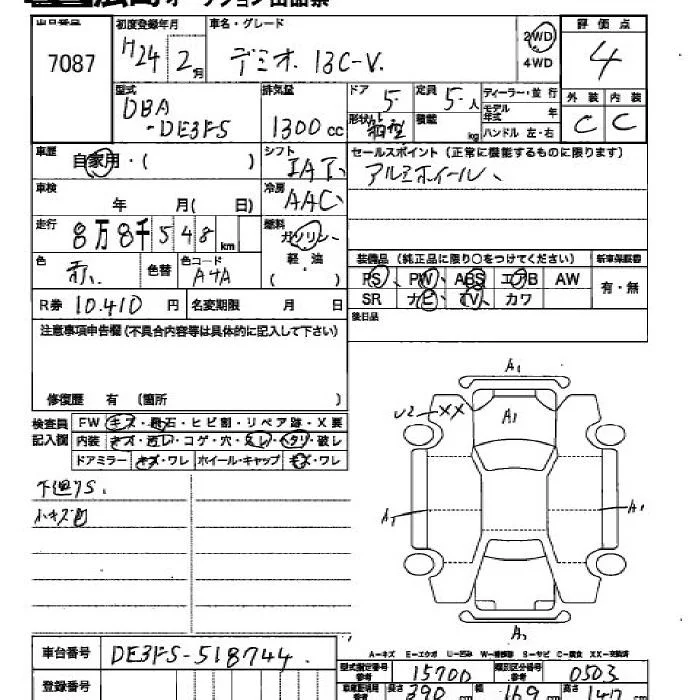 広島オークション出品票
出品番号 7087
初度登録年月 H24 2月
車名・グレード デミオ 13C-V
2WD 4WD
評価点 4
外装 C 内装 C
型式 DBA-DE3FS
排気量 1300 cc
ドア 5 定員 5人
形状 箱型 積載 kg
ディーラー・並行
モデル年式 年
ハンドル 左・右
車歴 自家用・( )
シフト IAT
セールスポイント (正常に機能するものに限ります)
アルミホイール、
車検 年 月( 日)
冷房 AAC
走行 8万8千548 km
燃料 ガソリン 軽油 ( )
色 赤 色替 色コード A4A
装備品 (純正品に限り○をつけてください) 新車保証書
PS PW ABS エアB AW 有・無
SR ナビ TV カワ
R券 10.410 円 名変期限 月 日
後日品
注意事項申告欄 (不具合内容等は具体的に記入して下さい)
修復歴 有 (箇所 )
検査員記入欄
FW キズ・飛石・ヒビ割・リペア跡・X要
内装 キズ・汚レ・コゲ・穴・スレ・ヘタリ・破レ
ドアミラー キズ・ワレ ホイール・キャップ キズ・ワレ
下廻りS.
小キズ凹
A1
U2 XX A1
A1 A1
A2
A-キズ E-エクボ U-凹み W-補修跡 S-サビ C-腐食 XX-交換済
車台番号 DE3FS-518744
登録番号
型式指定番号 15700 類別区分番号 0503
長さ 390 cm 幅 169 cm 高さ 147 cm